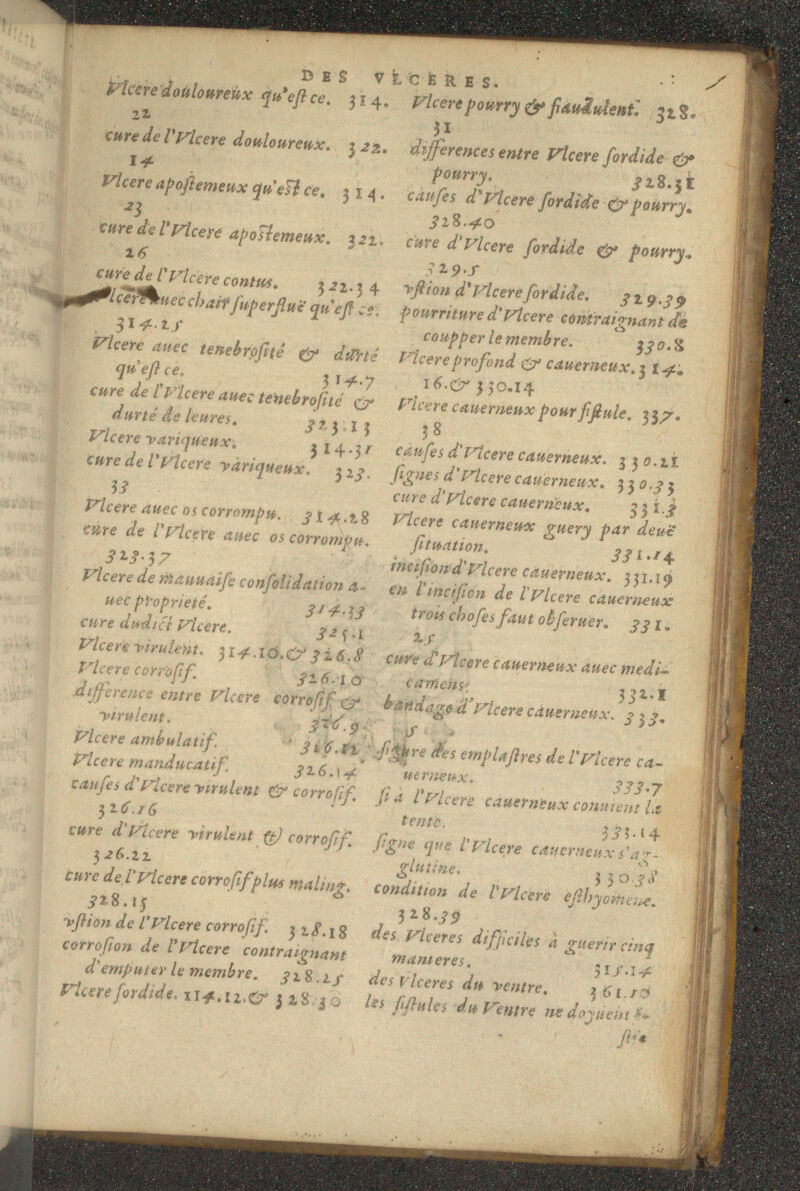 DES VLCERES.
Vlcere douloureux qu'eſt ce. 314.
22
cure de l'Vlcere douloureux. 322.
14
Vlcere apoſtemeux qu'eſt ce. 314.
23
cure de l'Vlcere apoſtemeux. 322.
26
cure de l'Vlcere contus. 322.34
auec chair ſuperfluë qu'eſt ce.
314.25
Vlcere auec tenebroſité & durté
qu'eſt ce. 314.7
cure de l'Vlcere auec tenebroſité &
durté de leures. 323.13
Vlcere variqueux. 314.31
cure de l'Vlcere variqueux. 323.
33
Vlcere auec os corrompu. 314.28
cure de l'Vlcere auec os corrompu.
323.37
Vlcere de mauuaiſe conſolidation a-
uec proprieté. 314.33
cure dudict Vlcere. 325.1
Vlcere virulent. 314.10.& 326.8
Vlcere corroſif. 326.10
difference entre Vlcere corroſif &
virulent. 326.9
Vlcere ambulatif. 326.12
Vlcere manducatif. 326.14
cauſes d'Vlcere virulent & corroſif.
326.16
cure d'Vlcere virulent & corroſif.
326.22
cure de l'Vlcere corroſif plus maling.
328.15
vſtion de l'Vlcere corroſif. 328.18
corroſion de l'Vlcere contraignant
d'emputer le membre. 328.25
Vlcere ſordide. 114.12.& 328.30
Vlcere pourry & fraudulent. 328.
31
differences entre Vlcere ſordide &
pourry. 328.31
cauſes d'Vlcere ſordide & pourry.
328.40
cure d'Vlcere ſordide & pourry.
329.5
vſtion d'Vlcere ſordide. 329.39
pourriture d'Vlcere contraignant de
coupper le membre. 330.8
Vlcere profond & cauerneux. 314.
16.& 330.14
Vlcere cauerneux pour fiſtule. 337.
38
cauſes d'Vlcere cauerneux. 330.21
ſignes d'Vlcere cauerneux. 330.33
cure d'Vlcere cauerneux. 331.3
Vlcere cauerneux guery par deuë
ſituation. 331.14
inciſion d'Vlcere cauerneux. 331.19
en l'inciſion de l'Vlcere cauerneux
trois choſes faut obſeruer. 331.
25
cure d'Vlcere cauerneux auec medi-
camens. 332.1
bandage d'Vlcere cauerneux. 333.
5
figure des emplaſtres de l'Vlcere ca-
uerneux. 333.7
ſi à l'Vlcere cauerneux conuient la
tente. 333.14
ſigne que l'Vlcere cauerneux s'ag-
glutine. 330.38
condition de l'Vlcere eſthyomene.
328.39
des Vlceres difficiles à guerir cinq
manieres. 315.14
des Vlceres du ventre. 361.10
les fiſtules du Ventre ne doyuent